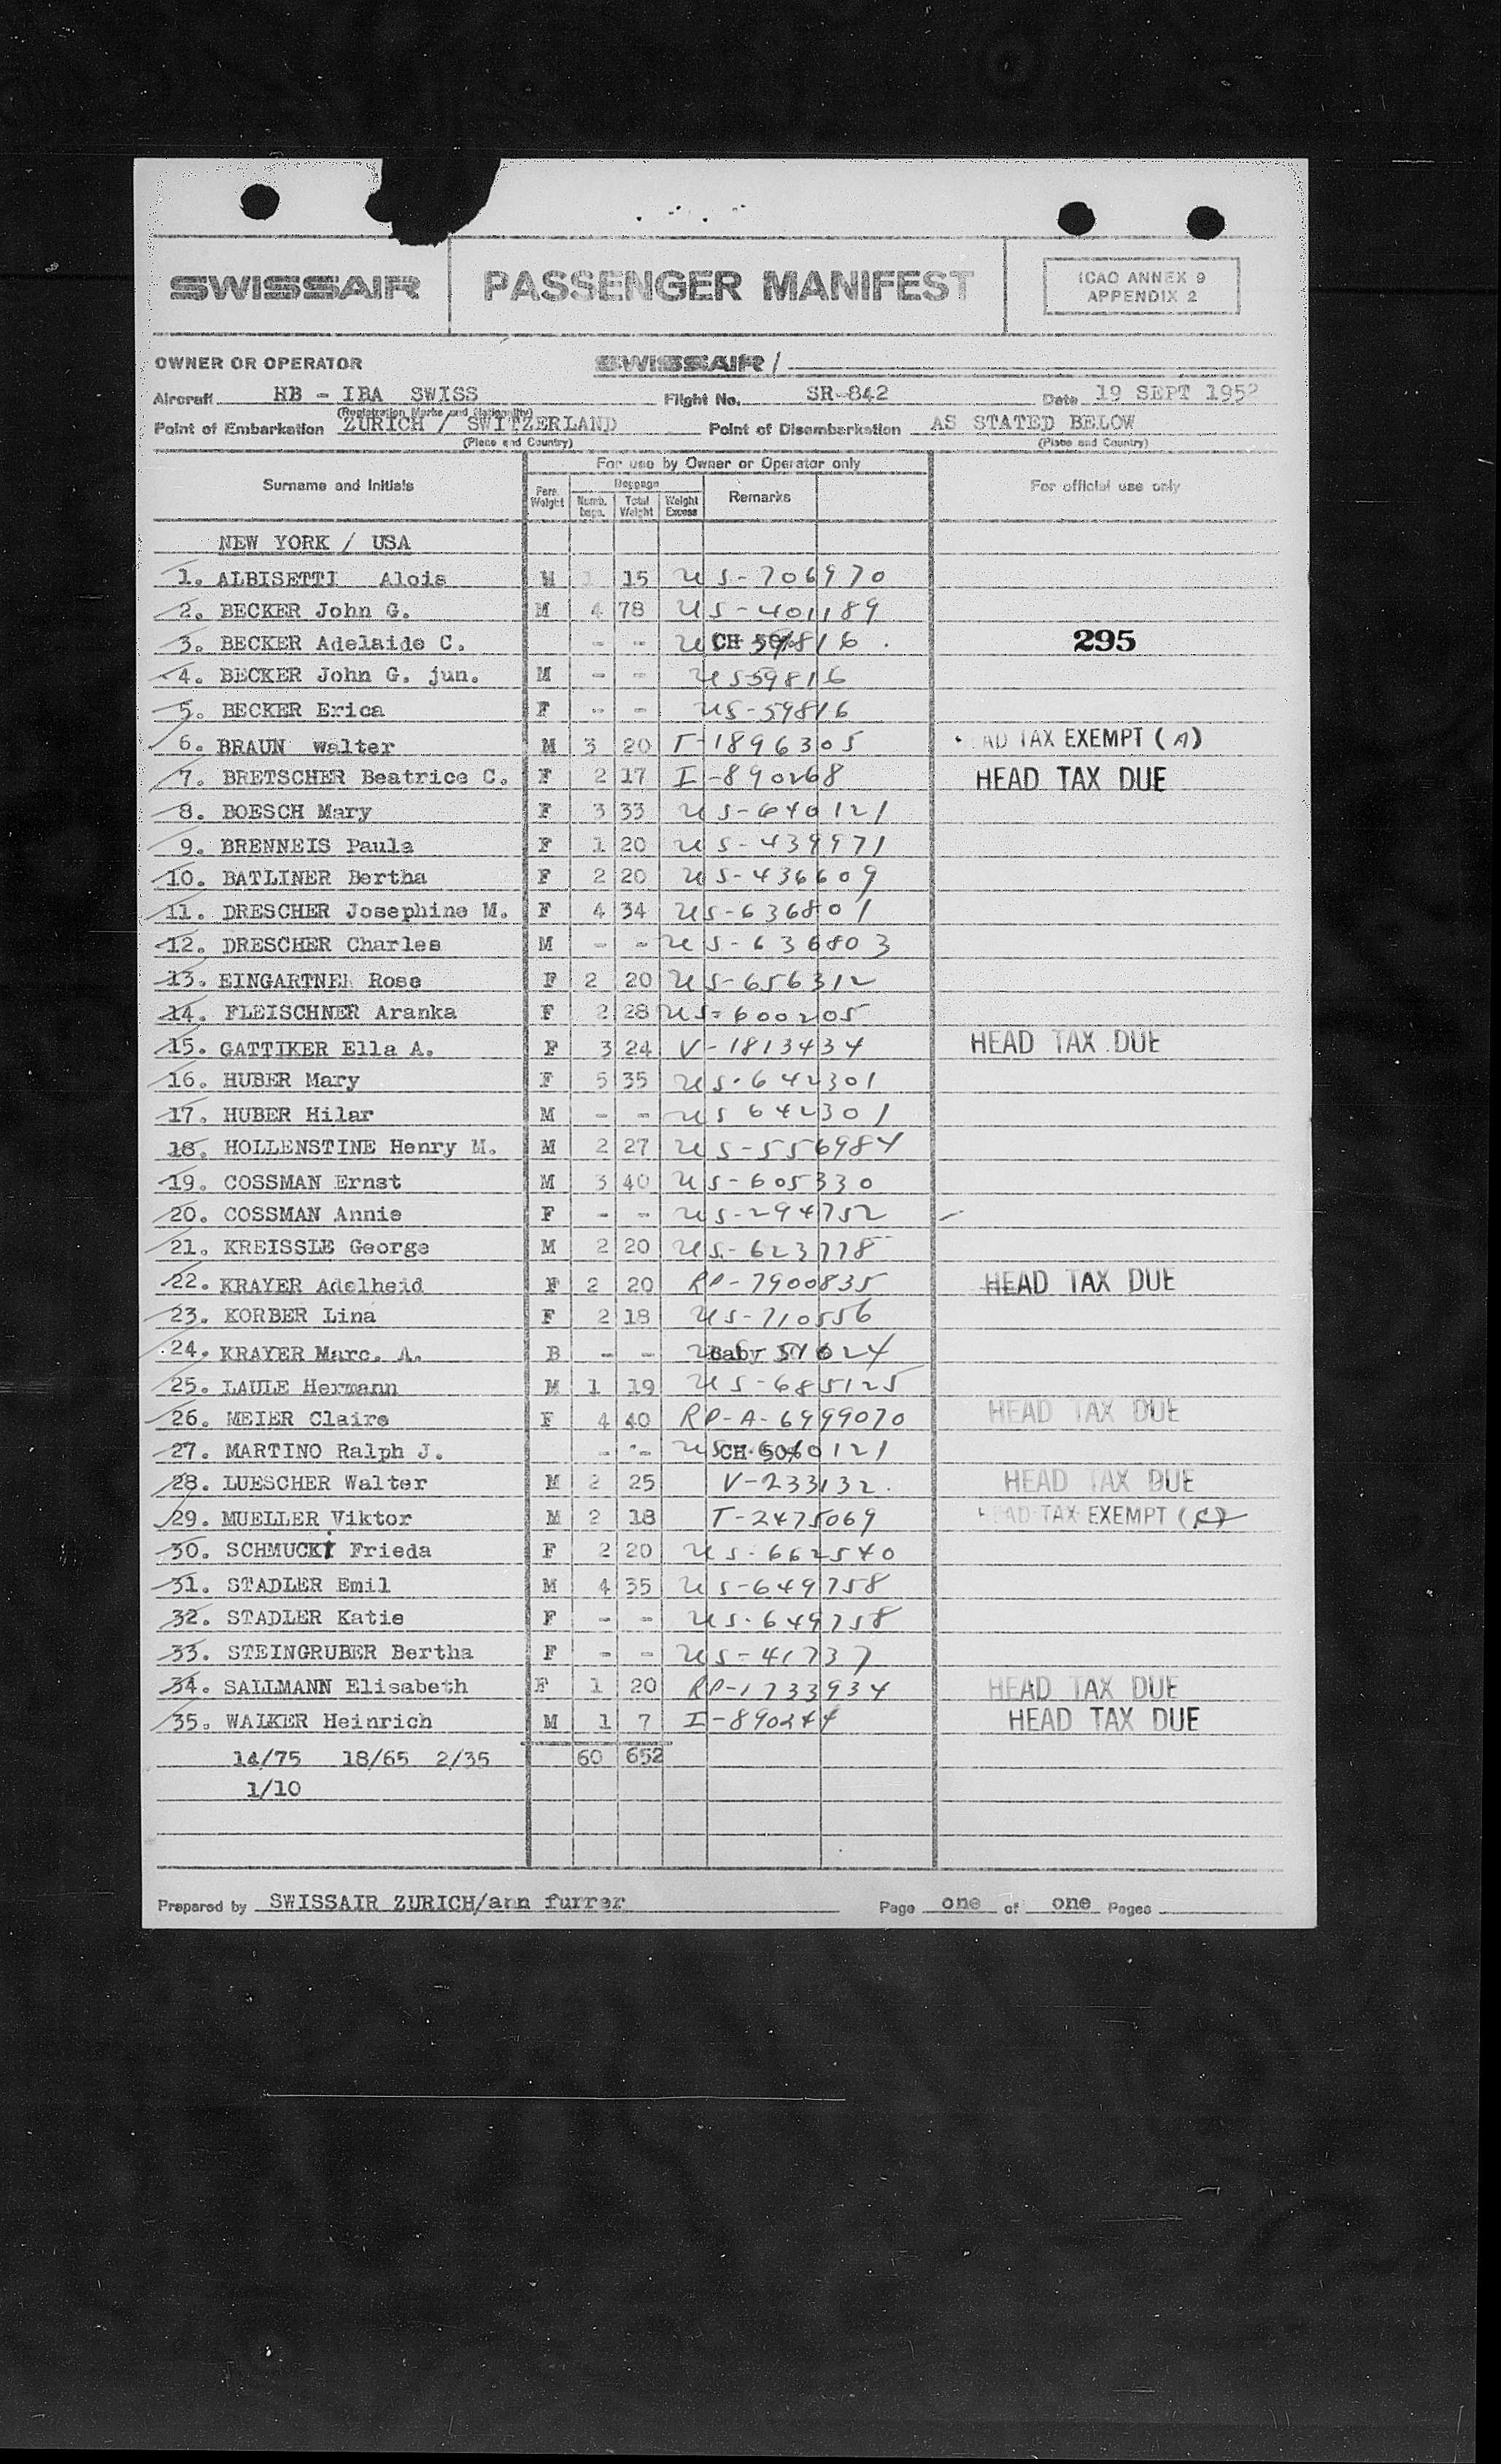 SWISSAIR PASSENGER MANIFEST ICAO ANNEX 9
APPENDIX 2
OWNER OR OPERATOR SWISSAIR /
Aircraft HB - IBA SWISS Flight No. SR-842 Date 19 SEPT 195
(Registration Marks and Nationality)
Point of Embarkation ZURICH / SWITZERLAND Point of Disembarkation AS STATED BELOW
(Place and Country) (Place and Country)
For use by Owner or Operator only
Surname and Initials Pers. Weight Baggage Numb. bags. Total Weight Weight Excess Remarks For official use only
NEW YORK / USA
1. ALBISETTI Alois M 15 US-706970
2. BECKER John G. M 4 78 US-401189
3. BECKER Adelaide C. - - CH 295
4. BECKER John G. jun. M - - US59816
5. BECKER Erica F - - US-59816
6. BRAUN walter M 3 20 T-1896305 AD TAX EXEMPT (A)
7. BRETSCHER Beatrice C. F 2 17 I-890268 HEAD TAX DUE
8. BOESCH Mary F 3 33 US-640121
9. BRENNEIS Paula F 1 20 US-439971
10. BATLINER Bertha F 2 20 US-436609
11. DRESCHER Josephine M. F 4 34 US-636801
12. DRESCHER Charles M - - US-636803
13. EINGARTNER Rose F 2 20 US-656312
14. FLEISCHNER Aranka F 2 28 US-600205
15. GATTIKER Ella A. F 3 24 V-1813434 HEAD TAX DUE
16. HUBER Mary F 5 35 US-642301
17. HUBER Hilar M - - US 642301
18. HOLLENSTINE Henry M. M 2 27 US-556984
19. COSSMAN Ernst M 3 40 US-605330
20. COSSMAN Annie F - - US-294752
21. KREISSLE George M 2 20 US-623778
22. KRAYER Adelheid F 2 20 RP-7900835 HEAD TAX DUE
23. KORBER Lina F 2 18 US-710556
24. KRAYER Marc. A. B - - Baby
25. LAULE Hermann M 1 19 US-685125
26. MEIER Claire F 4 40 RP-A-6999070 HEAD TAX DUE
27. MARTINO Ralph J. - - CH 50%
28. LUESCHER Walter M 2 25 V-233132. HEAD TAX DUE
29. MUELLER Viktor M 2 18 T-2475069 AD TAX EXEMPT
30. SCHMUCKI Frieda F 2 20 US-662540
31. STADLER Emil M 4 35 US-649758
32. STADLER Katie F - - US-649758
33. STEINGRUBER Bertha F - - US-41737
34. SALLMANN Elisabeth F 1 20 RP-1733934 HEAD TAX DUE
35. WALKER Heinrich M 1 7 I-890244 HEAD TAX DUE
14/75 18/65 2/35 60 652
1/10
Prepared by SWISSAIR ZURICH/ann furrer Page one of one Pages